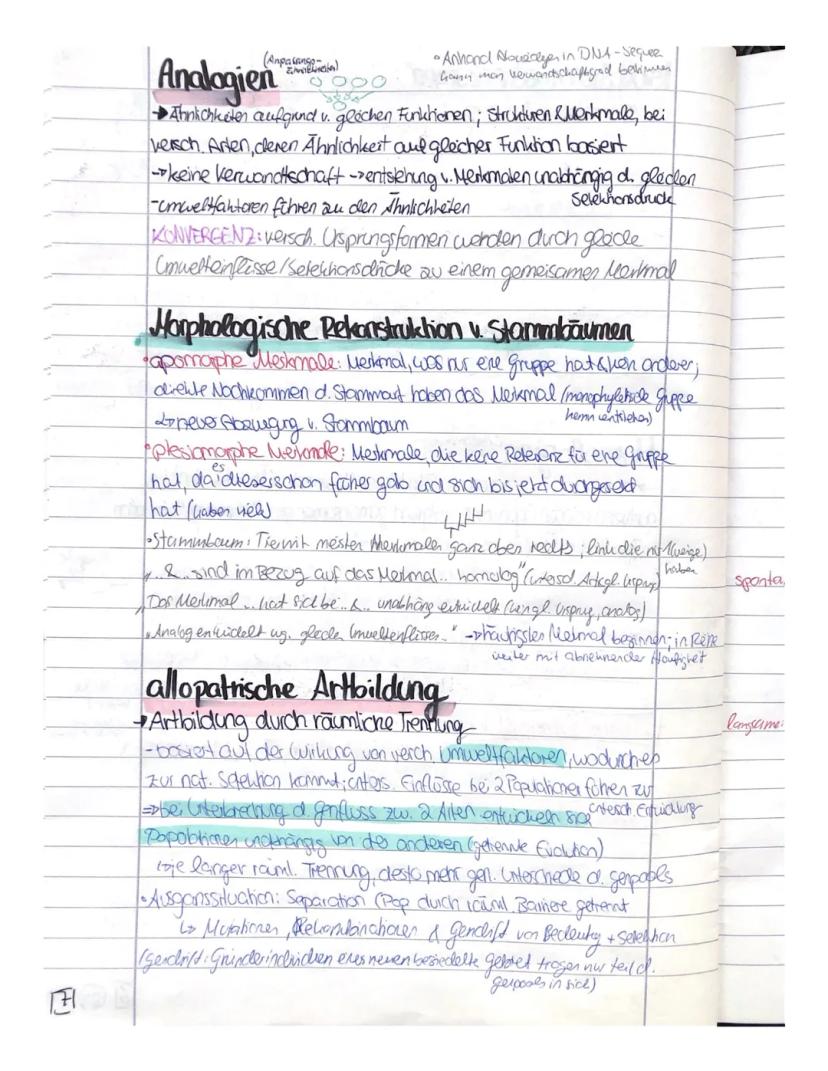 Analogien (Anpassungs-Ähnlichkeiten)
• Anhand Abweichungen in DNA-Sequenz
kann man verwandtschaftsgrad bestimmen
→ Ähnlichkeiten aufgrund v. gleichen Funktionen; Strukturen & Merkmale, bei
versch. Arten, deren Ähnlichkeit auf gleicher Funktion basiert
→ keine Verwandtschaft → entstehung v. Merkmalen unabhängig d. gleichen
Selektionsdruck
- umweltfaktoren führen zu den Ähnlichkeiten
KONVERGENZ: versch. Ursprungsformen werden durch gleiche
Umwelteinflüsse/Selektionsdrücke zu einem gemeisamen Merkmal
Morphologische Rekonstruktion v. Stammbäumen
• apomorphe Merkmale: Merkmal, was nur eine Gruppe hat & kein anderer;
direkte Nachkommen d. Stammart haben das Merkmal (monophyletische Gruppe
kann entstehen)
↳ neue Abzweigung v. Stammbaum
• plesiomorphe Merkmale: Merkmale, die keine Relevanz für eine gruppe
hat, da es dieses schon früher gab und sich bis jetzt durchgesetzt
hat (haben viele)
• Stammbaum: Tier mit meisten Merkmalen ganz oben rechts; links die nur 1 (weige)
haben
"... & ... sind im Bezug auf das Merkmal ... homolog" (untersch. Artgl. Urspung)
"Das Merkmal ... hat sich bei ... & ... unabhäng entwickelt (ungl. Urspung, analog)
"Analog entwickelt wg. gleicher Umwelteinflüssen ..." → häufigsten Merkmal beginnen; in Reihe
weiter mit abnehmender Häufigkeit
allopatrische Artbildung
→ Artbildung durch räumliche Trennung
- basiert auf der Wirkung von versch. Umweltfaktoren, wodurch es
zur nat. Selektion kommt; unters. Einflüsse bei 2 Populationen führen zur
untersch. Entwicklung
⇒ bei Unterbrechung d. Genfluss zw. 2 Arten entwickeln sich
Populationen unabhängig von der anderen (getrennte Evolution)
↳ je länger räuml. Trennung, desto mehr gen. Unterschiede d. genpools
• Ausganssituation: Separation (Pop durch räuml. Barriere getrennt
↳ Mutationen, Rekombinationen & Gendrift von Bedeutung + Selektion
(Gendrift: Gründerindividuen eines neuen besiedelte gebiet tragen nur teil d.
genpools in sich)
7
sponta
langsame